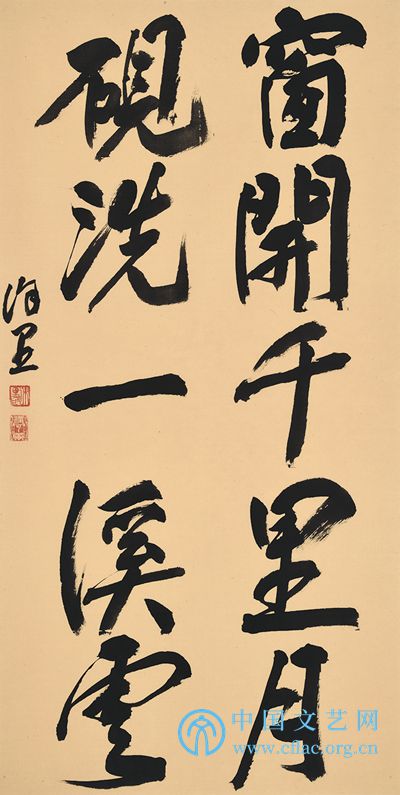 窗開千里月
硯洗一溪雲
中国文艺网
www.cflac.org.cn